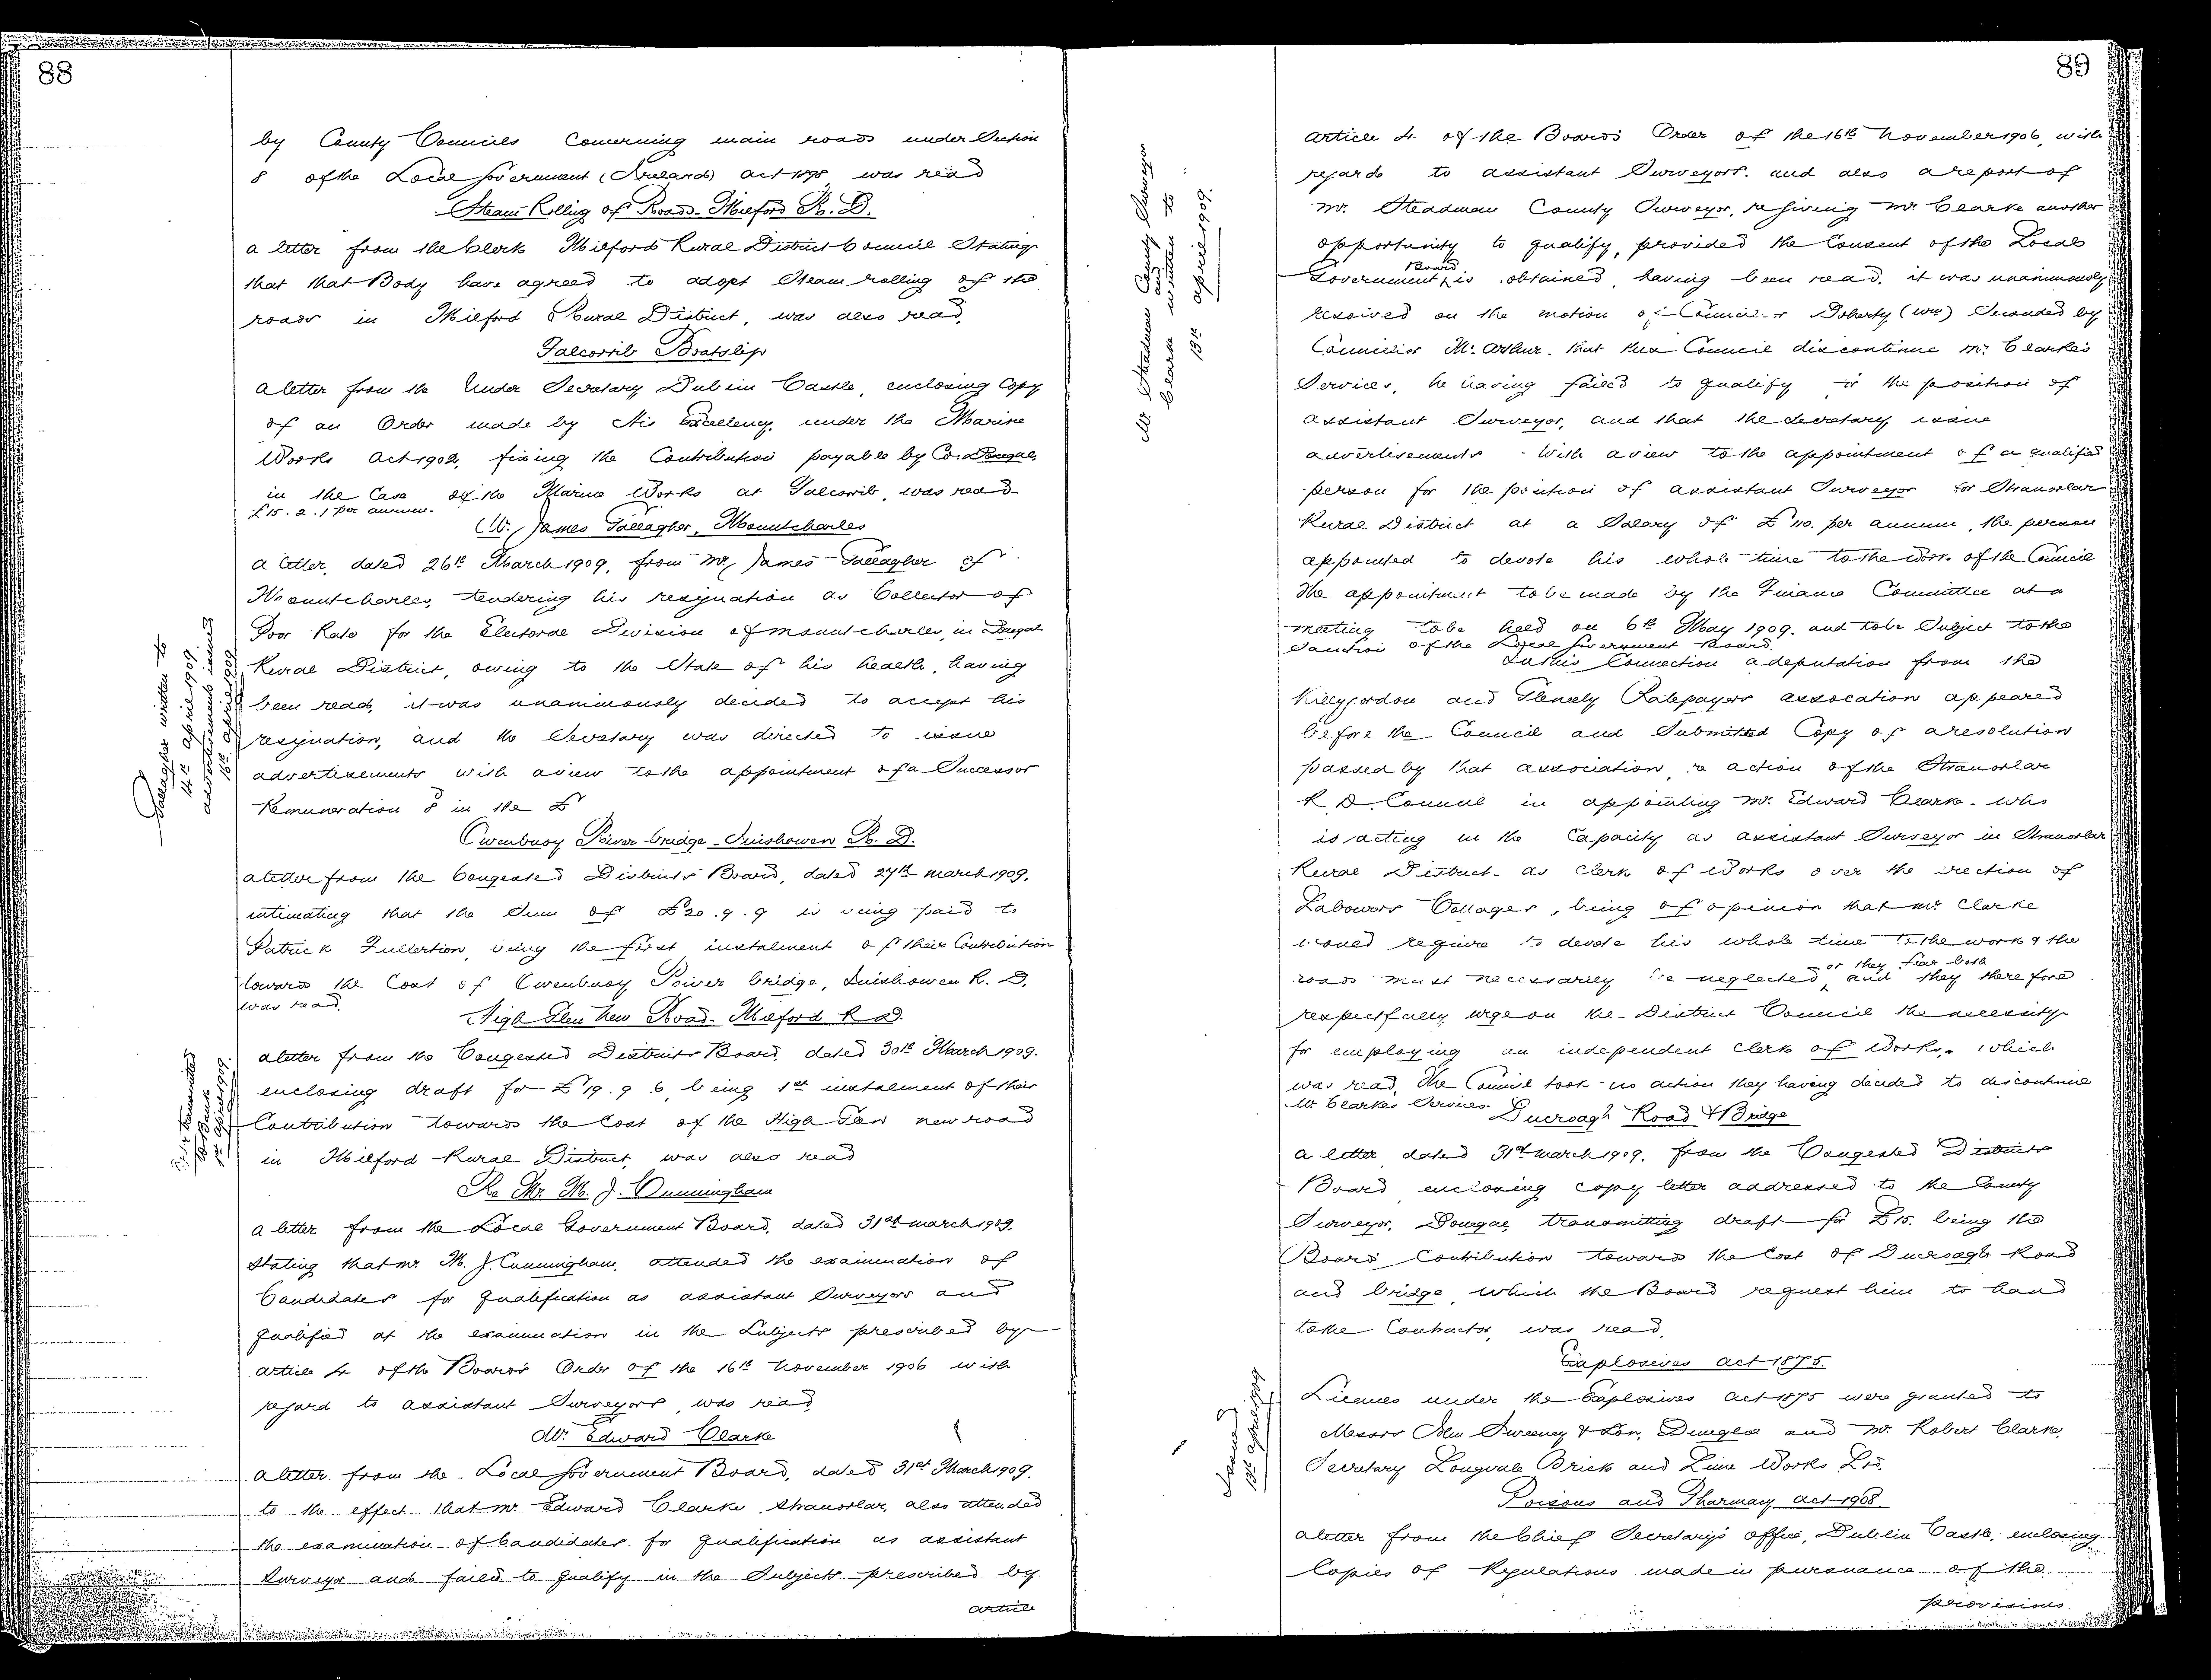 88
by County Councils concerning main roads under Section
8 of the Local Government (Ireland) Act 1898, was read
Steam Rolling of Roads - Milford R. D.
A letter from the Clerk Milford Rural District Council Stating
that that Body have agreed to adopt Steam rolling of the
roads in Milford Rural District, was also read.
Falcorrib Boatslip
A letter from the Under Secretary Dublin Castle, enclosing Copy
of an Order made by His Excellency, under the Marine
Works Act 1902, fixing the Contribution payable by Co. Donegal,
in the Case of the Marine Works at Falcorrib, was read
£15. 2. 1 per annum.
Mr. James Gallagher, Mountcharles
A letter, dated 26th March 1909, from Mr. James Gallagher of
Mountcharles, tendering his resignation as Collector of
Poor Rate for the Electoral Division of Mountcharles, in Donegal
Rural District, owing to the State of his health, having
been read, it was unanimously decided to accept his
resignation, and the Secretary was directed to issue
advertisements with a view to the appointment of a Successor
Remuneration 8d in the £
Gallagher written to
14th April 1909.
advertisements issued
16th April 1909
Owenbuoy River bridge - Inishowen R. D.
A letter from the Congested Districts Board, dated 27th March 1909,
intimating that the Sum of £20. 9. 9 is being paid to
Patrick Fullerton, being the first instalment of their Contribution
towards the Cost of Owenbuoy River bridge, Inishowen R. D.
was read.
High Glen New Road - Milford R D.
A letter from the Congested Districts Board, dated 30th March 1909.
enclosing draft for £19. 9. 6, being 1st instalment of their
Contribution towards the Cost of the High Glen new road
in Milford Rural District, was also read
to Bank
April 1909.
Re Mr. M. J. Cunningham
A letter from the Local Government Board, dated 31st March 1909,
Stating that Mr. M. J. Cunningham, attended the examination of
Candidates for qualification as assistant Surveyors and
qualified at the examination in the Subjects prescribed by
Article 4 of the Board's Order of the 16th November 1906 with
regard to assistant Surveyors, was read
Mr. Edward Clarke
A letter from the Local Government Board, dated 31st March 1909,
to the effect that Mr. Edward Clarke, Stranorlar, also attended
the examination of Candidates for qualification as assistant
Surveyor and failed to qualify in the Subjects prescribed by
Article
89
Article 4 of the Board's Order of the 16th November 1906, with
regards to assistant Surveyors. and also a report of
Mr. Steadman County Surveyor, re giving Mr. Clarke another
opportunity to qualify, provided the Consent of the Local
Government Board is obtained, having been read, it was unanimously
resolved on the motion of Councillor Doherty (Wm) Seconded by
Councillor McArthur. that this Council discontinue Mr. Clarke's
Services, he having failed to qualify for the position of
Assistant Surveyor, and that the Secretary issue
advertisements with a view to the appointment of a qualified
person for the position of Assistant Surveyor for Stranorlar
Rural District at a Salary of £110. per annum, the person
appointed to devote his whole time to the work of the Council
The appointment to be made by the Finance Committee at a
meeting to be held on 6th May 1909. and to be Subject to the
Sanction of the Local Government Board.
Mr. Steadman County Surveyor
and
Clarke written to
13th April 1909.
In this Connection a deputation from the
Killygordon and Gleneely Ratepayers Association appeared
before the Council and Submitted Copy of a resolution
passed by that association, re action of the Stranorlar
R. D. Council in appointing Mr. Edward Clarke - who
is acting in the Capacity as Assistant Surveyor in Stranorlar
Rural District - as Clerk of Works over the erection of
Labourers Cottages, being of opinion that Mr. Clarke
would require to devote his whole time to the work & the
roads must necessarily be neglected, or they fear both and they therefore
respectfully urge on the District Council the necessity
for employing an independent Clerk of Works, which
was read. The Council took no action they having decided to discontinue
Mr. Clarke's Services.
Road & Bridge
A letter dated 31st March 1909, from the Congested Districts
Board enclosing copy letter addressed to the County
Surveyor, Donegal, transmitting draft for £15. being the
Board's Contribution towards the Cost of Road
and bridge, which the Board request him to hand
to the Contractor, was read.
Explosives Act 1875.
Licences under the Explosives Act 1875 were granted to
Messrs John Sweeney & Son, Dungloe and Mr. Robert Clarke,
Secretary Longvale Brick and Lime Works Ltd.
Issued
13th April 1909
Poisons and Pharmacy Act 1908.
A letter from the Chief Secretary's Office, Dublin Castle, enclosing
Copies of Regulations made in pursuance of the
provisions